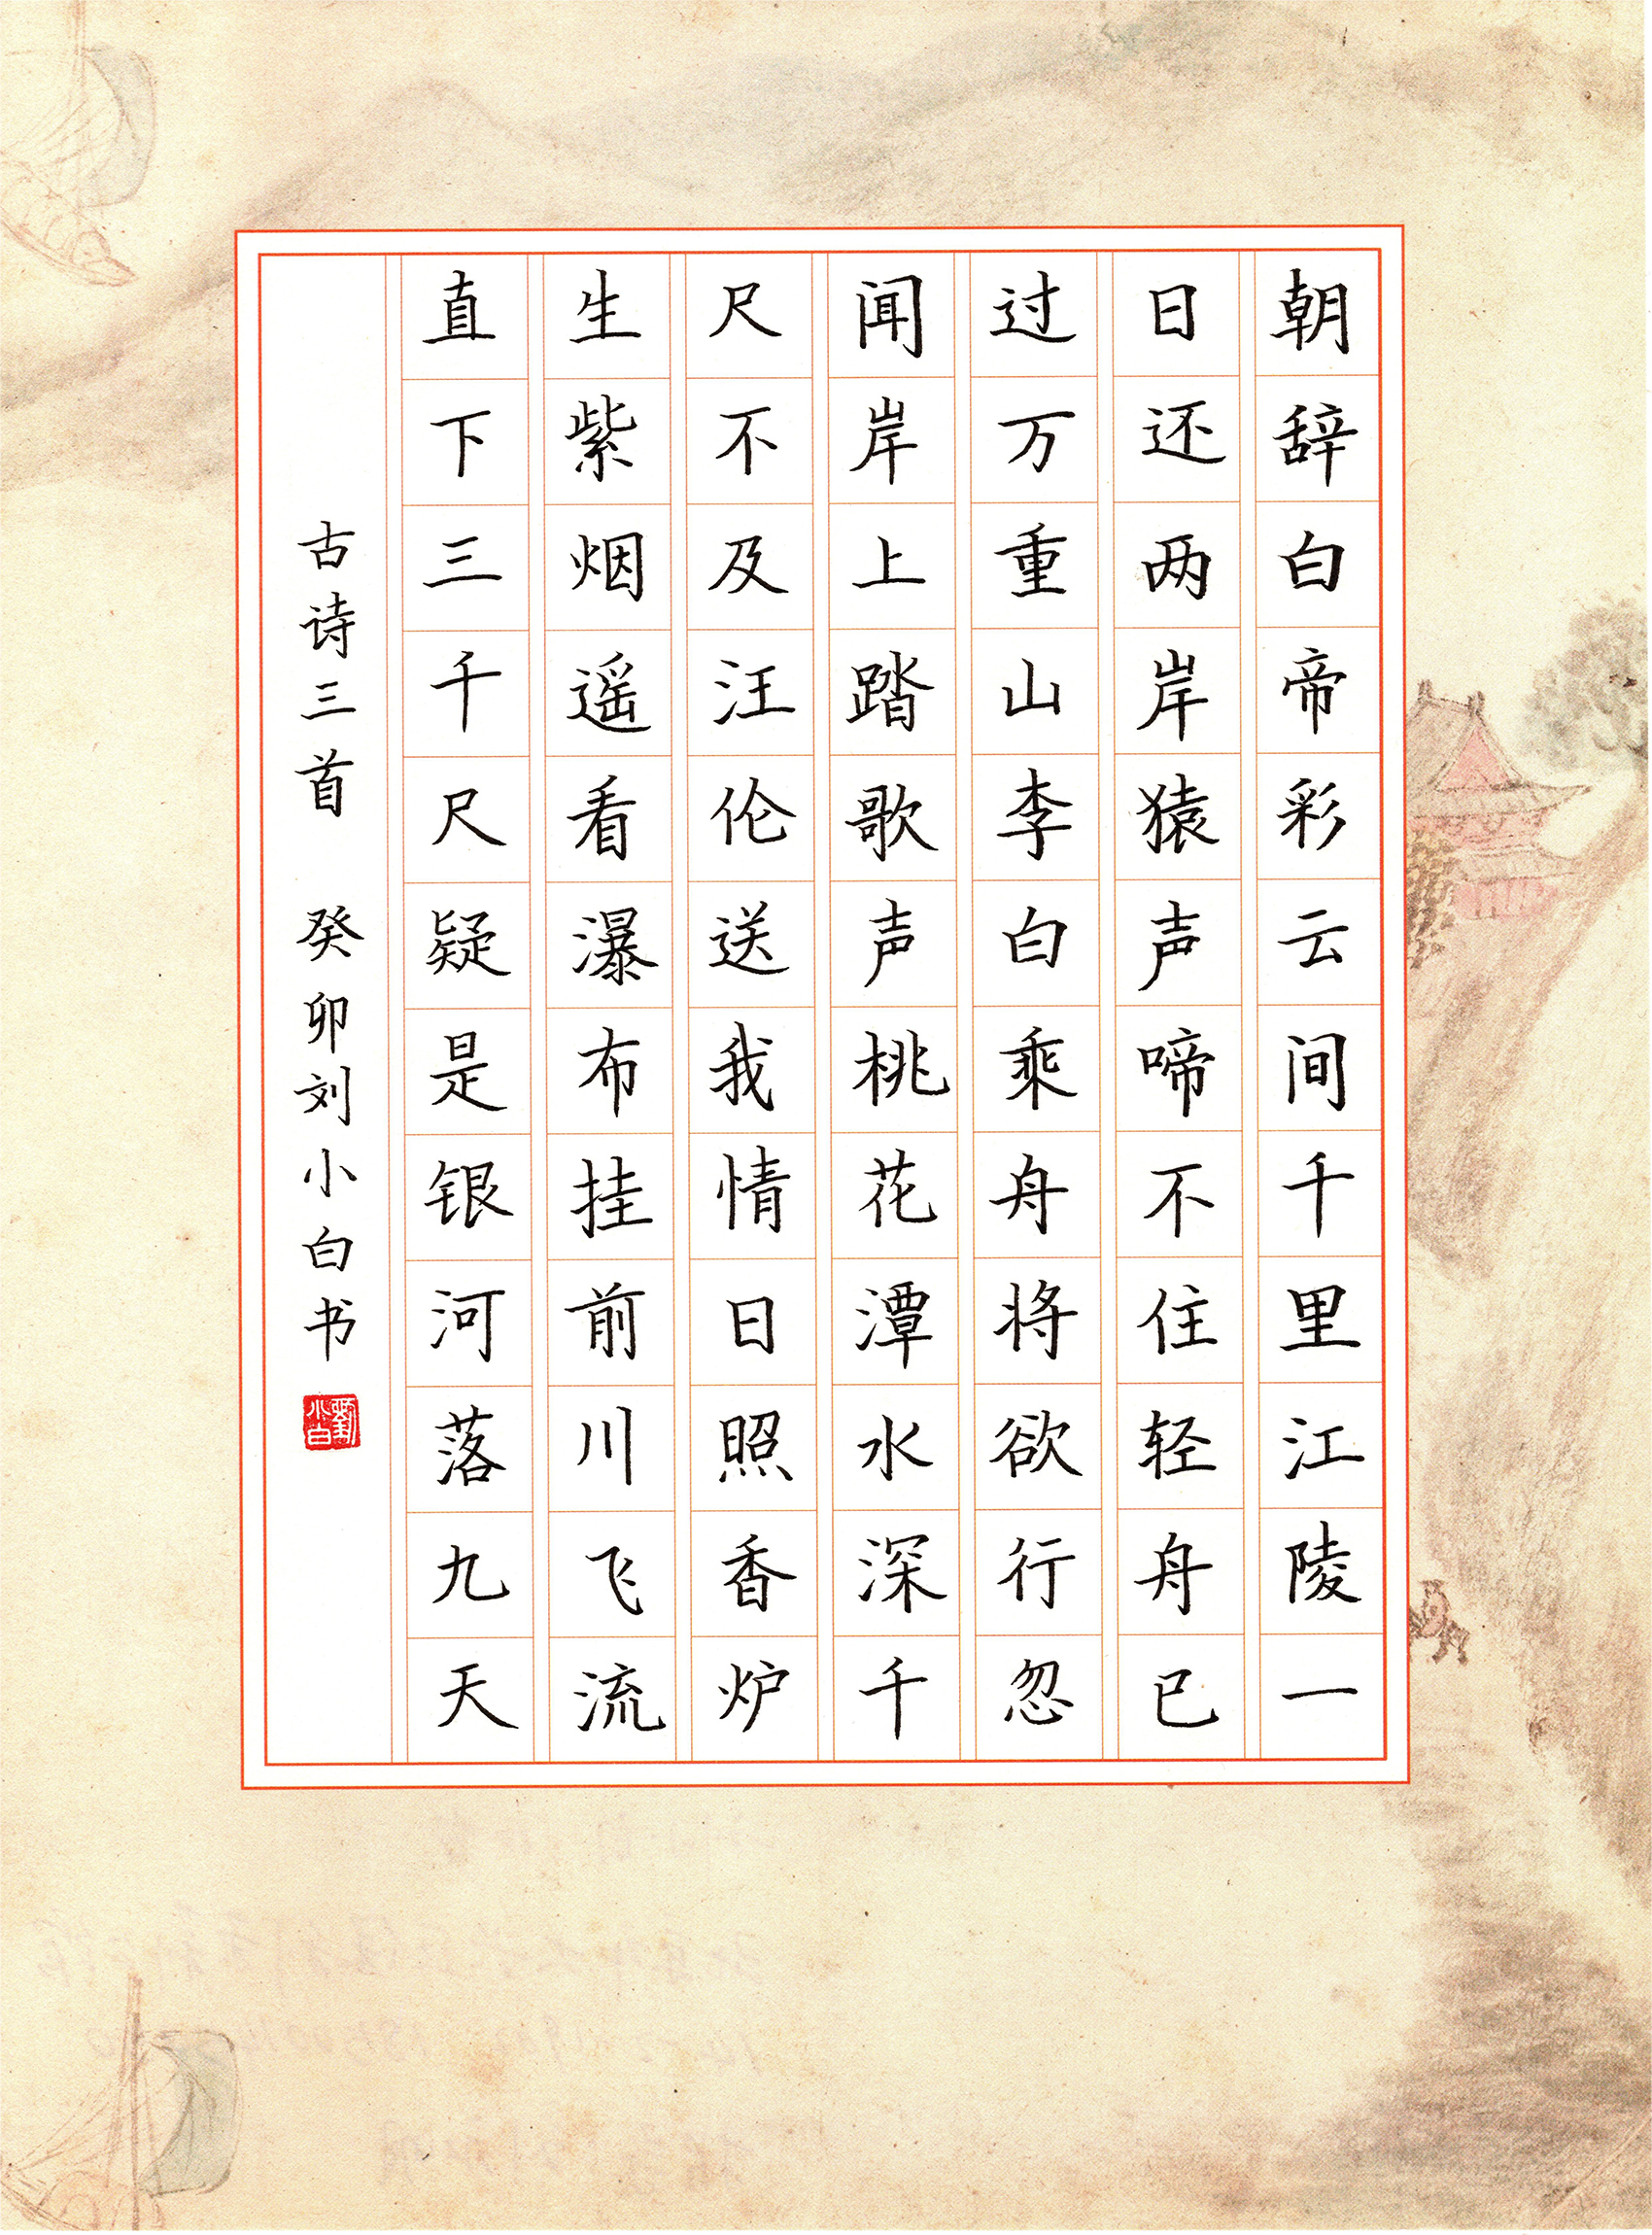 朝辞白帝彩云间千里江陵一
日还两岸猿声啼不住轻舟已
过万重山李白乘舟将欲行忽
闻岸上踏歌声桃花潭水深千
尺不及汪伦送我情日照香炉
生紫烟遥看瀑布挂前川飞流
直下三千尺疑是银河落九天
古诗三首 癸卯刘小白书
劉小白